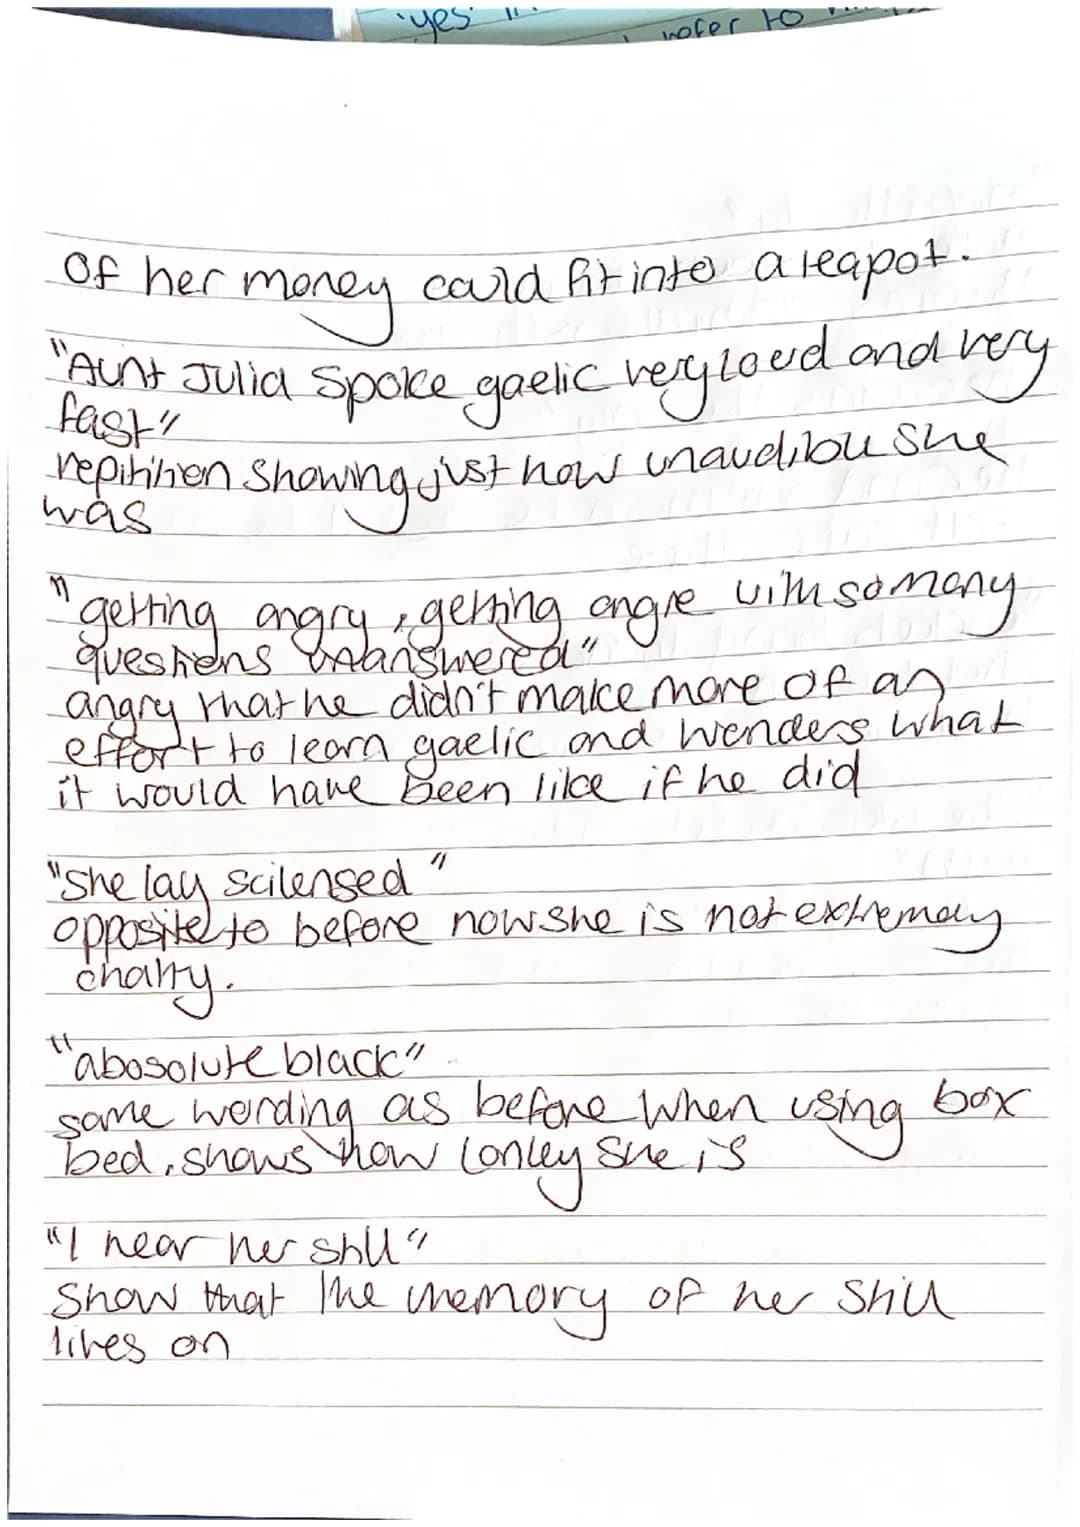 'yes'
refer to
of her money could fit into a teapot.
"Aunt Julia spoke gaelic very loud and very
fast"
repitition showing just how unaudibou she
was
"getting angry, getting angre with so many
questions unanswered"
angry that he didn't make more of an
effort to learn gaelic and wonders what
it would have been like if he did
"she lay scilensed"
opposite to before now she is not extremely
chatty.
"abosolute black"
same wording as before when using box
bed, shows how lonley she is
"I hear her still"
Show that the memory of her still
lives on